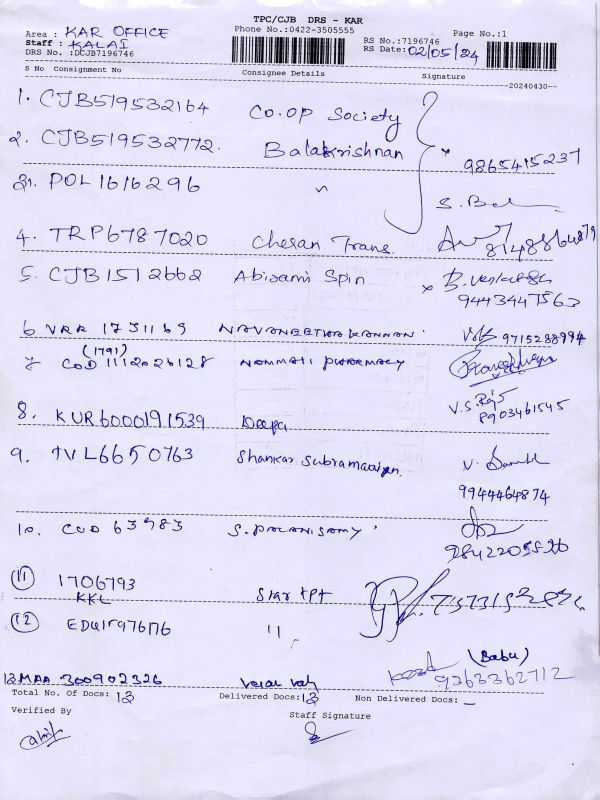 TPC/CJB DRS - KAR
Area : KAR OFFICE Phone No.:0422-3505555 Page No.:1
Staff : KALAI RS No.:7196746
DRS No. :DCJB7196746 RS Date: 02/05/24
S No Consignment No Consignee Details Signature
20240430
1. CJB519532164 CO.OP Society
2. CJB519532772 Balakrishnan 9865415237
3. POL1616296 " S. Bal
4. TRP6787020 Chesan Trans 8148864879
5. CJB1512662 Abirami Spin 9443447563
6 VRR 1731169 NAVANEETHAKANNAN 9715288994
(1791)
7 COD 1112026128 NAMMALI PHARMACY
8. KUR6000191539 Deepa V.S. Raj 8903461545
9. TVL6650763 Shankar Subramaniyan 9944464874
10. COD 63983 S. PALANISAMY
11 1706793 Star TPT
KKL
12 "
(Babu)
13 MAA 300902326 9263362712
Total No. Of Docs: 13 Delivered Docs: 13 Non Delivered Docs: -
Verified By Staff Signature